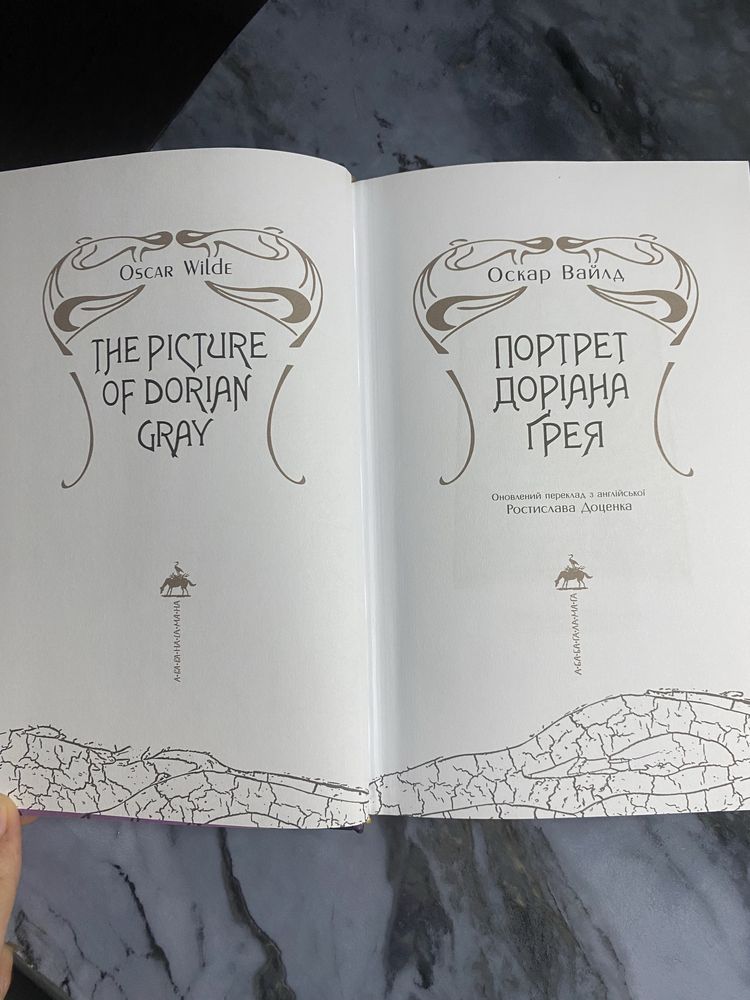 OSCAR WILDE
THE PICTURE
OF DORIAN
GRAY
A·BA·BA·HA·LA·MA·HA
Оскар Вайлд
ПОРТРЕТ
ДОРІАНА
ҐРЕЯ
Оновлений переклад з англійської
Ростислава Доценка
А·БА·БА·ГА·ЛА·МА·ГА